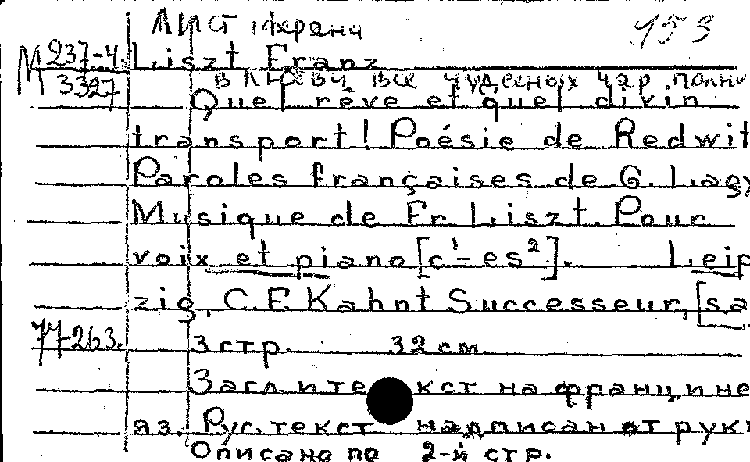 Лист Ференц 153
М 237-4 Liszt Franz
3327 В любви все чудесных чар полно
Quel rêve et quel divin
transport! Poésie de Redwit
Paroles françaises de G. Lagy
Musique de Fr. Liszt. Pour
voix et piano [c¹-es²]. Leip
zig, C. F. Kahnt Successeur, [sa
77-263. 3 стр. 32 см
Загл и текст на франц и не
яз. Рус. текст надписан от рук
Описано по 2-й стр.